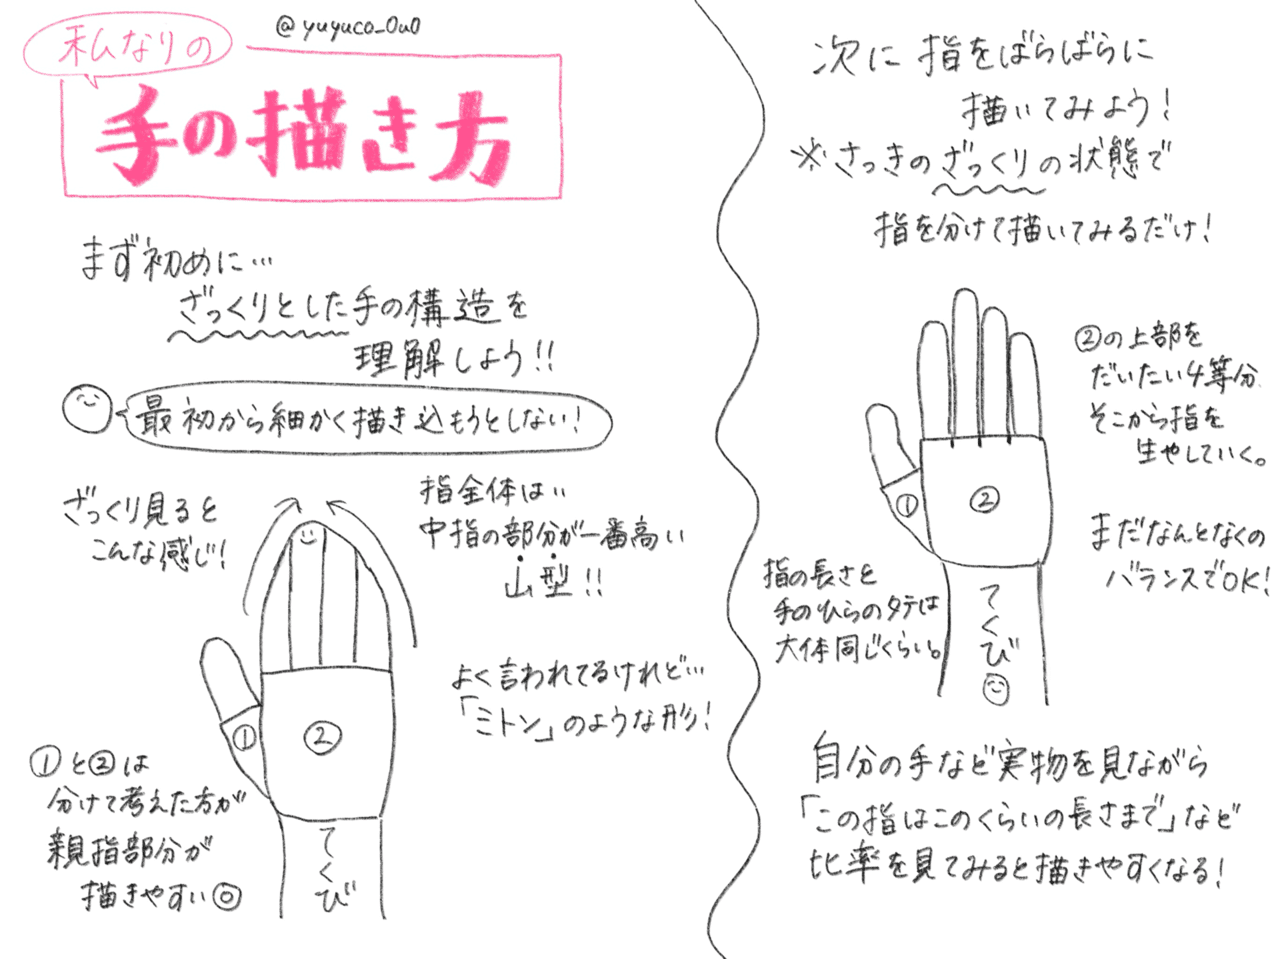 私なりの
@yuyuco_0u0
手の描き方
まず初めに…
ざっくりとした手の構造を
理解しよう!!
最初から細かく描き込もうとしない!
ざっくり見ると
こんな感じ!
指全体は‥
中指の部分が一番高い
山型!!
よく言われてるけれど…
「ミトン」のような形!
①
②
①と②は
分けて考えた方が
親指部分が
描きやすい◎
てくび
次に指をばらばらに
描いてみよう!
※さっきのざっくりの状態で
指を分けて描いてみるだけ!
②の上部を
だいたい4等分
そこから指を
生やしていく。
①
②
まだなんとなくの
バランスでOK!
指の長さと
手のひらのタテは
大体同じくらい。
てくび
自分の手など実物を見ながら
「この指はこのくらいの長さまで」など
比率を見てみると描きやすくなる!